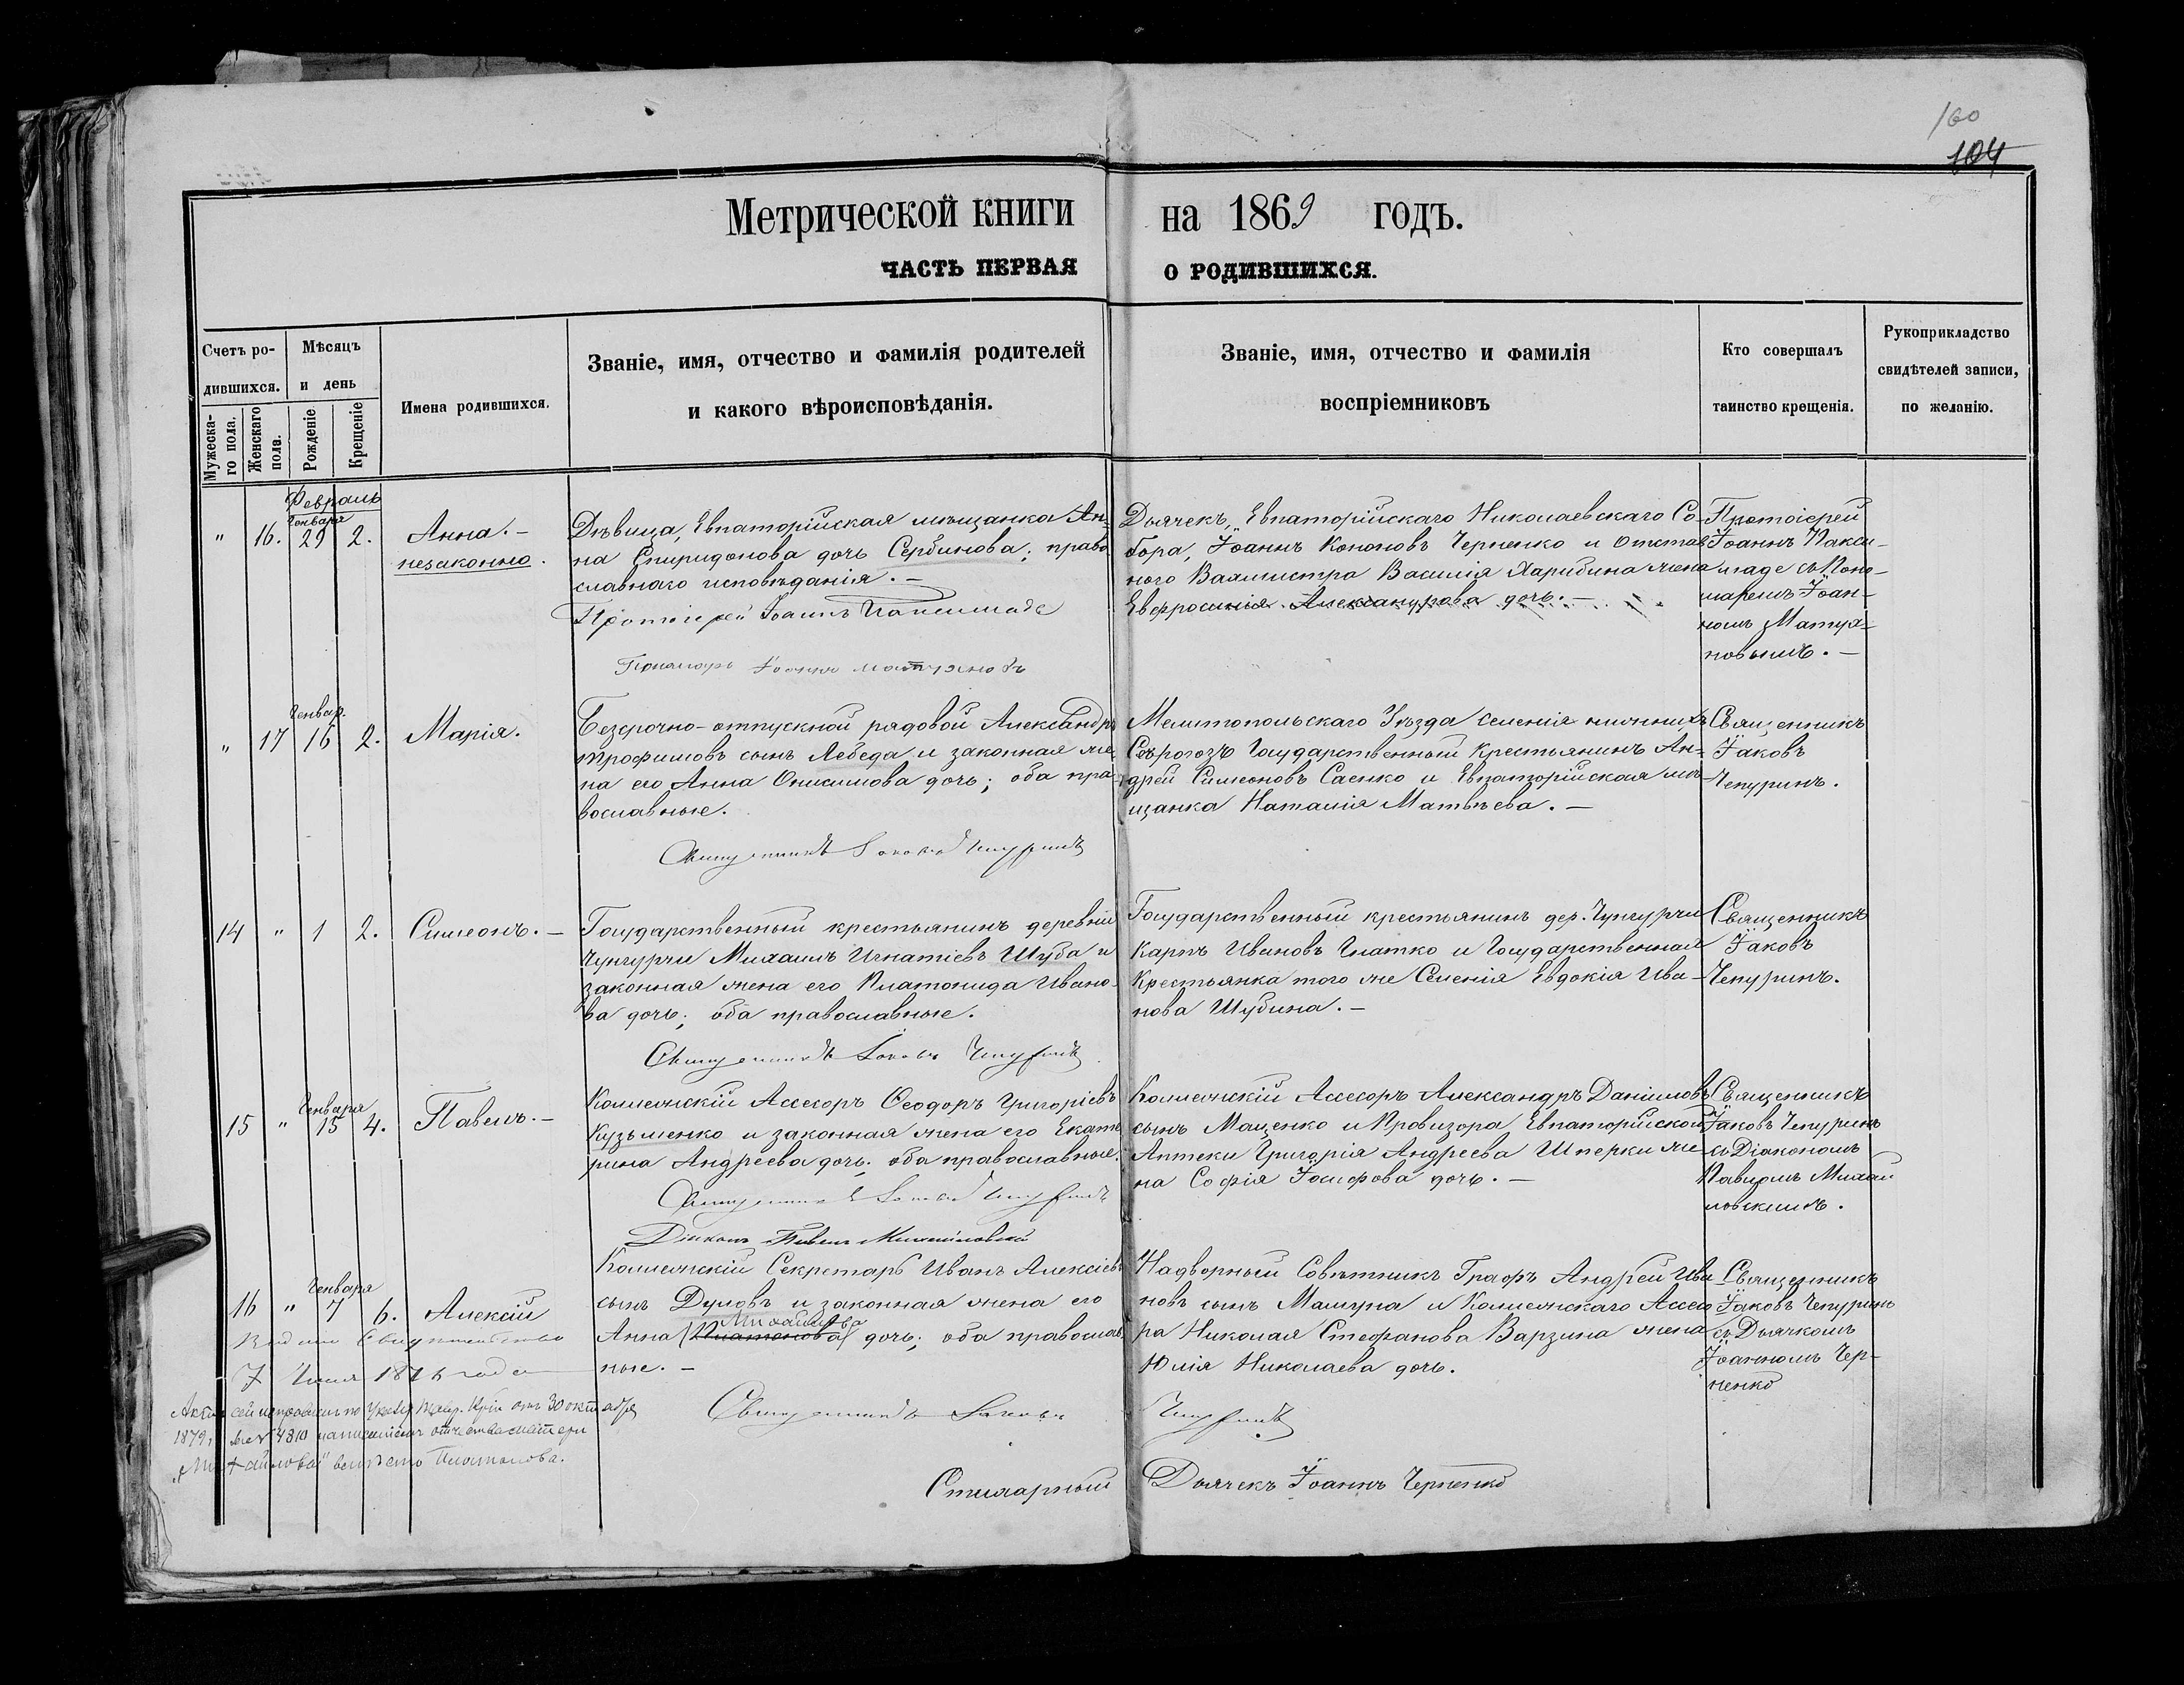 160
104
Метрической книги на 1869 годъ.
ЧАСТЬ ПЕРВАЯ О РОДИВШИХСЯ.
Счетъ ро-
дившихся.
Мужеска-
го пола.
Женскаго
пола.
Мѣсяцъ
и день
Рожденіе.
Крещеніе
Имена родившихся.
Званіе, имя, отчество и фамилія родителей
и какого вѣроисповѣданія.
Званіе, имя, отчество и фамилія
воспріемниковъ
Кто совершалъ
таинство крещенія.
Рукоприкладство
свидѣтелей записи,
по желанію.
Февраль
Генваря
" 16. 29 2.
Анна. –
незаконно.
Дѣвица, Евпаторійская мѣщанка Ан-
на Спиридонова дочь Сербинова; право
славнаго исповѣданія. –
Протоіерей Іоаннъ Паксимаде
Пономарь Іоаннъ Матуяновъ
Дьячекъ, Евпаторійскаго Николаевскаго Со-
бора, Іоаннъ Кононовъ Черненко и Отстав
ного Вахмистра Василія Харибина жена
Евфросинія Александрова дочь. –
Протоіерей
Іоаннъ Пакси-
маде съ Поно-
маремъ Іоан-
номъ Матуя-
новымъ. –
Генвар.
" 17 16 2.
Марія.
Безсрочно-отпускной рядовой Александръ
Трофимовъ сынъ Лебеда и законная же-
на его Анна Онисимова дочь; оба пра-
вославные.
Священникъ Іаковъ Чепуринъ
Мелитопольскаго Уѣзда селенія нижнихъ
Сѣрогозъ Государственный Крестьянинъ Ан-
дрей Симеоновъ Саенко и Евпаторійская мѣ-
щанка Наталія Матвѣева. –
Священникъ
Іаковъ
Чепуринъ.
14 " 1 2.
Симеонъ. –
Государственный крестьянинъ деревни
Чунгурчи Михаилъ Игнатіевъ Шуба и
законная жена его Платонида Ивано-
ва дочь; оба православные.
Священникъ Іаковъ Чепуринъ
Государственный крестьянинъ дер. Чунгурчи
Карпъ Ивановъ Гнатко и Государственная
Крестьянка того же Селенія Евдокія Ива-
нова Шубина. –
Священникъ
Іаковъ
Чепуринъ.
Генваря
15 " 15 4.
Павелъ. –
Коллежскій Ассесоръ Ѳеодоръ Григоріевъ
Кузьменко и законная жена его Екате
рина Андреева дочь; оба православные.
Священникъ Іаковъ Чепуринъ
Діаконъ Павелъ Михайловскій
Коллежскій Ассесоръ Александръ Даніиловъ
сынъ Мащенко и Провизора Евпаторійской
Аптеки Григорія Андреева Шперки же-
на Софія Іосифова дочь. –
Священникъ
Іаковъ Чепуринъ
съ Діакономъ
Павломъ Михай
ловскимъ.
Генваря
16 " 7 6.
Алексій
Видано Свидѣтельство
7 Іюня 1876 года
Актъ сей исправленъ по Указу Тавр. Кон. отъ 30 октября
1879 г. № 4810 написаніемъ отчества матери
„Михайлова" вмѣсто Платонова.
Коллежскій Секретарь Иванъ Алексіевъ
сынъ Думовъ и законная жена его
Михайлова
Анна (Платонова) дочь; оба православ
ные. –
Надворный Совѣтникъ Графъ Андрей Ива
новъ сынъ Мамуна и Коллежскаго Ассесо
ра Николая Стефанова Варзина жена
Юлія Николаева дочь.
Священникъ
Іаковъ Чепуринъ
съ Дьячкомъ
Іоанномъ Чер-
ненко
Священникъ Іаковъ Чепуринъ
Стихарный Дьячекъ Іоаннъ Черненко